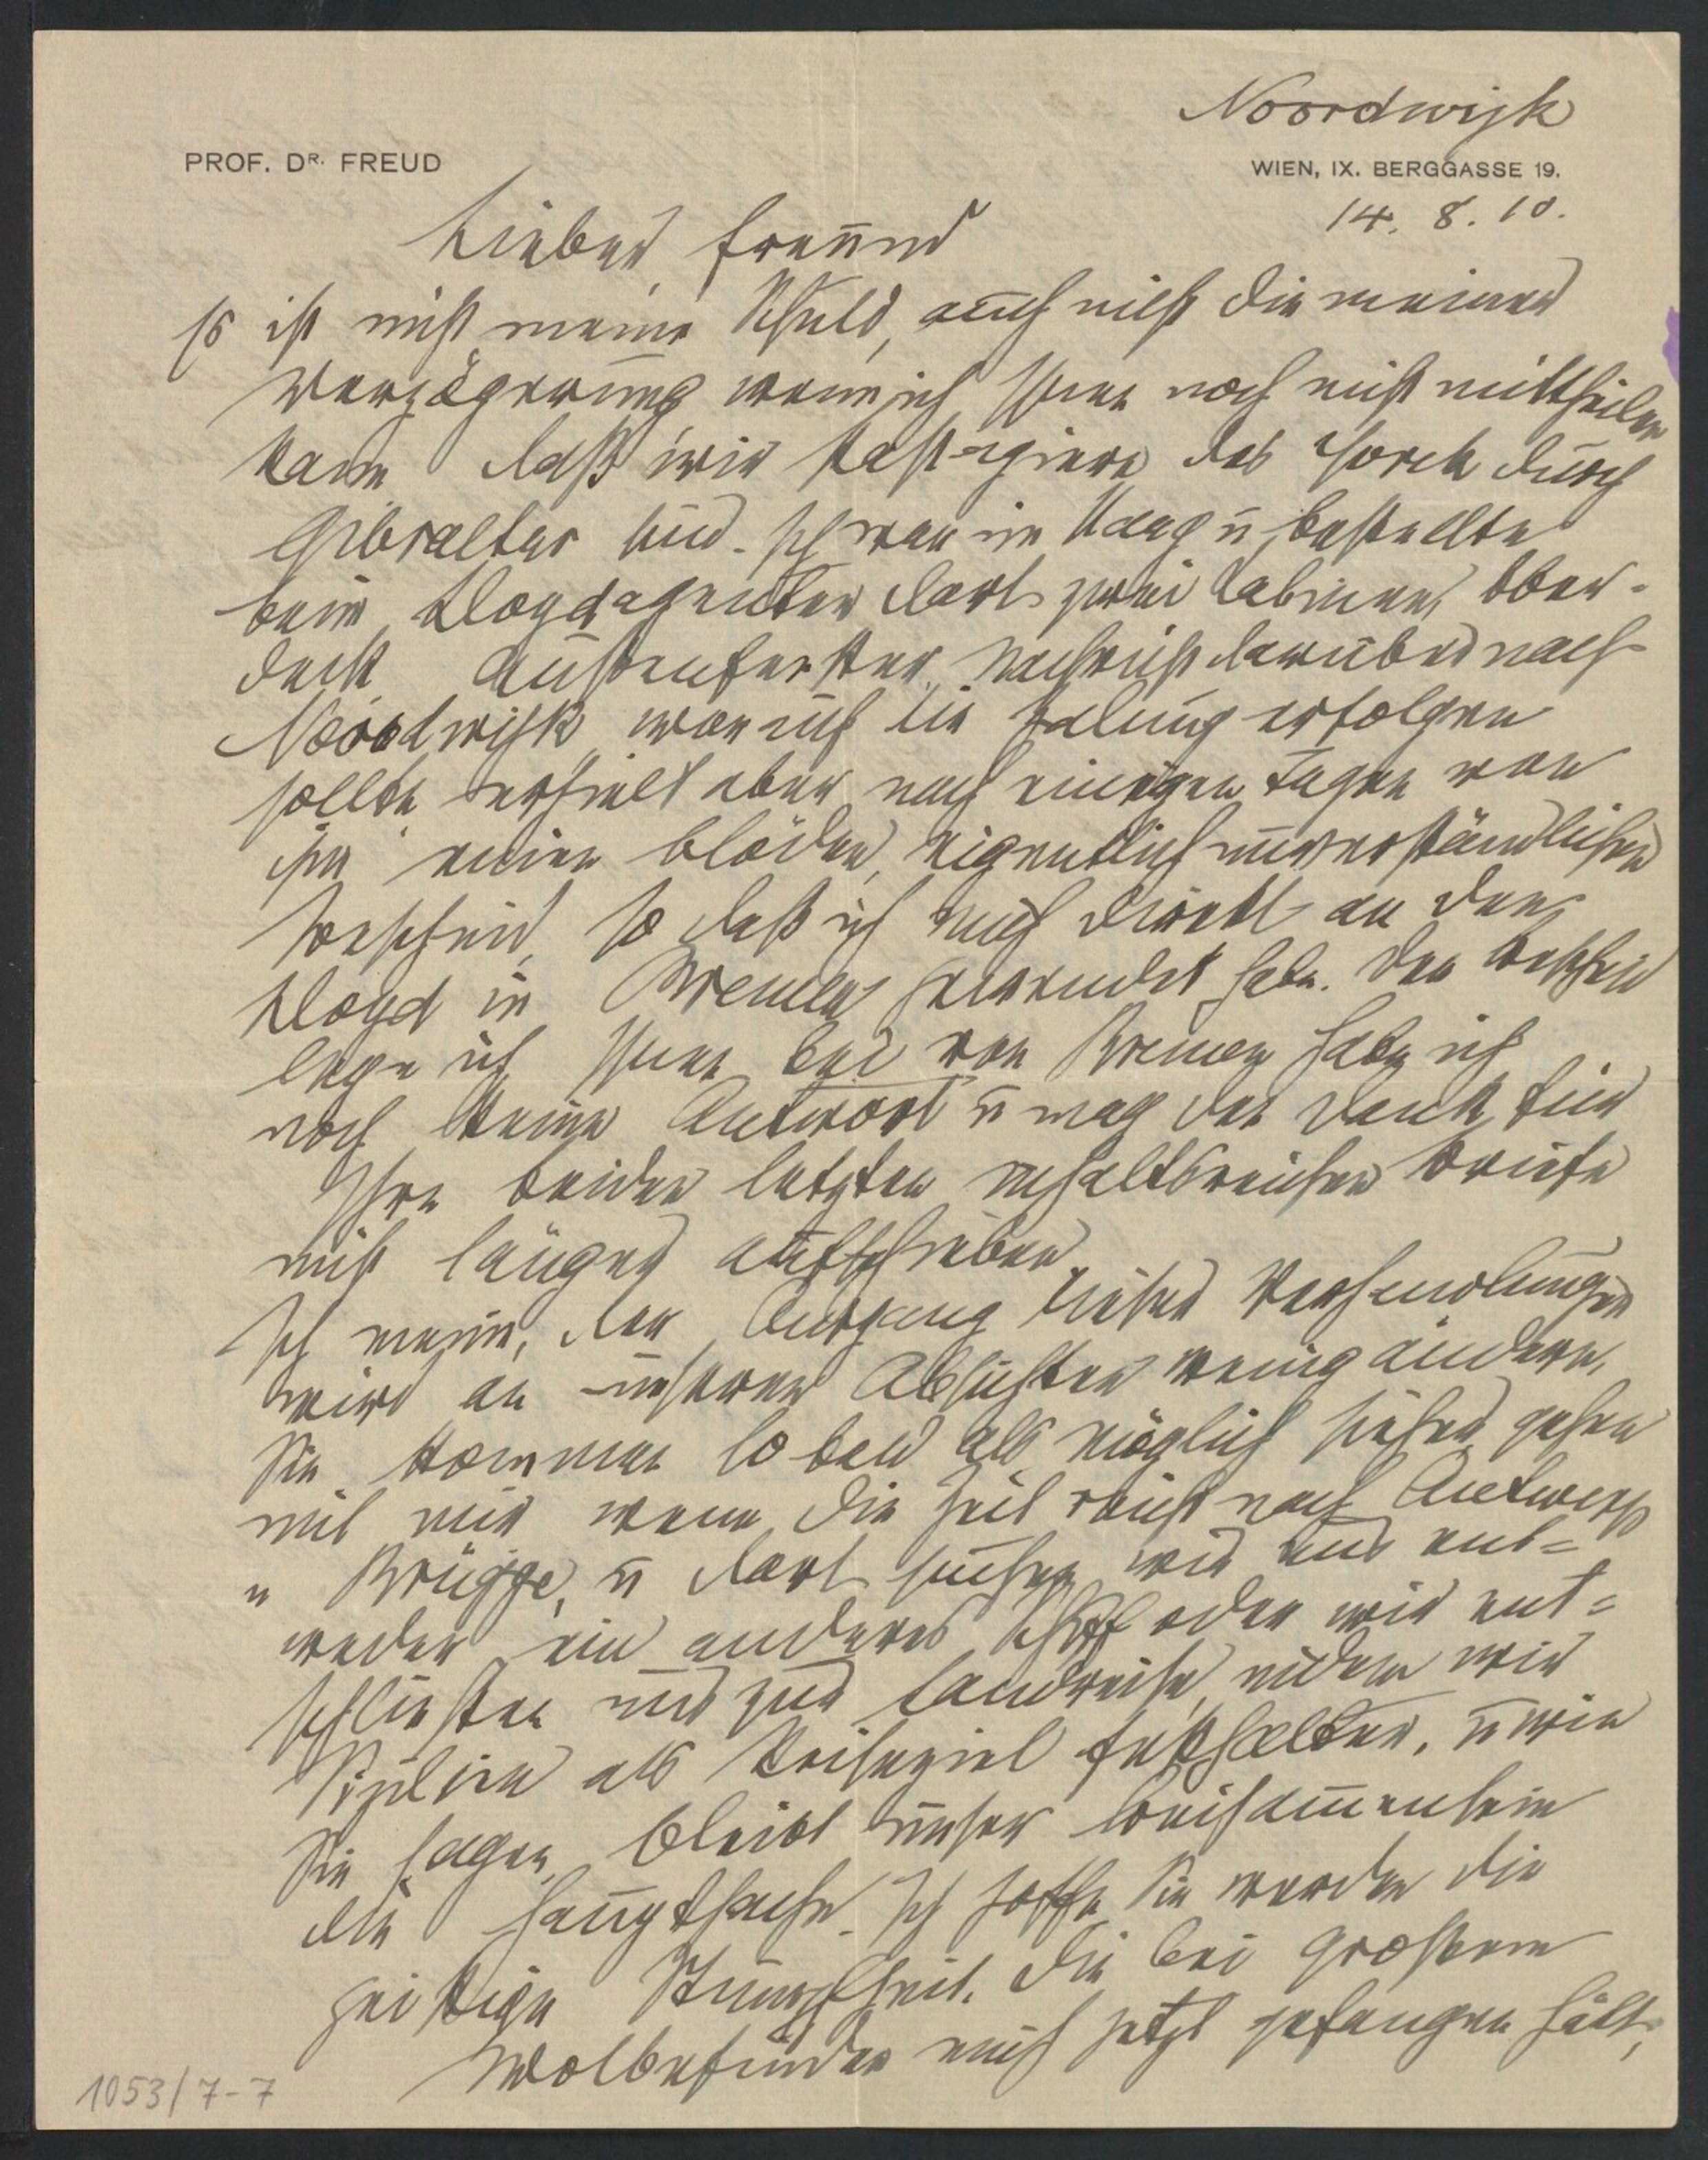 Noordwijk
PROF. DR. FREUD
WIEN, IX. BERGGASSE 19.
14. 8. 10.
Lieber Freund
Es ist nicht meine Schuld, auch nicht die meiner
Verzögerung wenn ich Ihnen noch nicht mittheilen
kann daß wir Passagiere des Yorck durch
Gibraltar sind. Ich war im Haag u bestellte
beim Lloydagenten dort zwei Cabinen, Ober-
deck Außenfenster, Nachricht darüber nach
Noordwijk, worauf die Zalung erfolgen
sollte erhielt aber nach einigen Tagen von
ihm einen blöden, eigentlich unverständlichen
Bescheid, so daß ich mich direkt an den
Lloyd in Bremen gewendet habe. Den Bescheid
lege ich Ihnen bei von Bremen habe ich
noch keine Antwort u mag den Dank für
Ihre beiden letzten inhaltsreichen Briefe
nicht länger aufschieben.
Ich meine, der Ausgang dieser Verhandlungen
wird an unseren Absichten wenig ändern,
Sie kommen so bald als möglich hieher, gehen
mit mir wenn die Zeit reicht nach Antwerp
u Brügge, u dort suchen wir uns ent=
weder ein anderes Schiff oder wir ent=
schließen uns zur Landreise, indem wir
Sizilien als Reiseziel festhalten, u wie
Sie sagen, bleibt unser Beisam̅ensein
die Hauptsache. Ich hoffe Sie werden die
geistige Stumpfheit, die bei großem
Wolbefinden mich jetzt gefangen hält,
1053/7-7